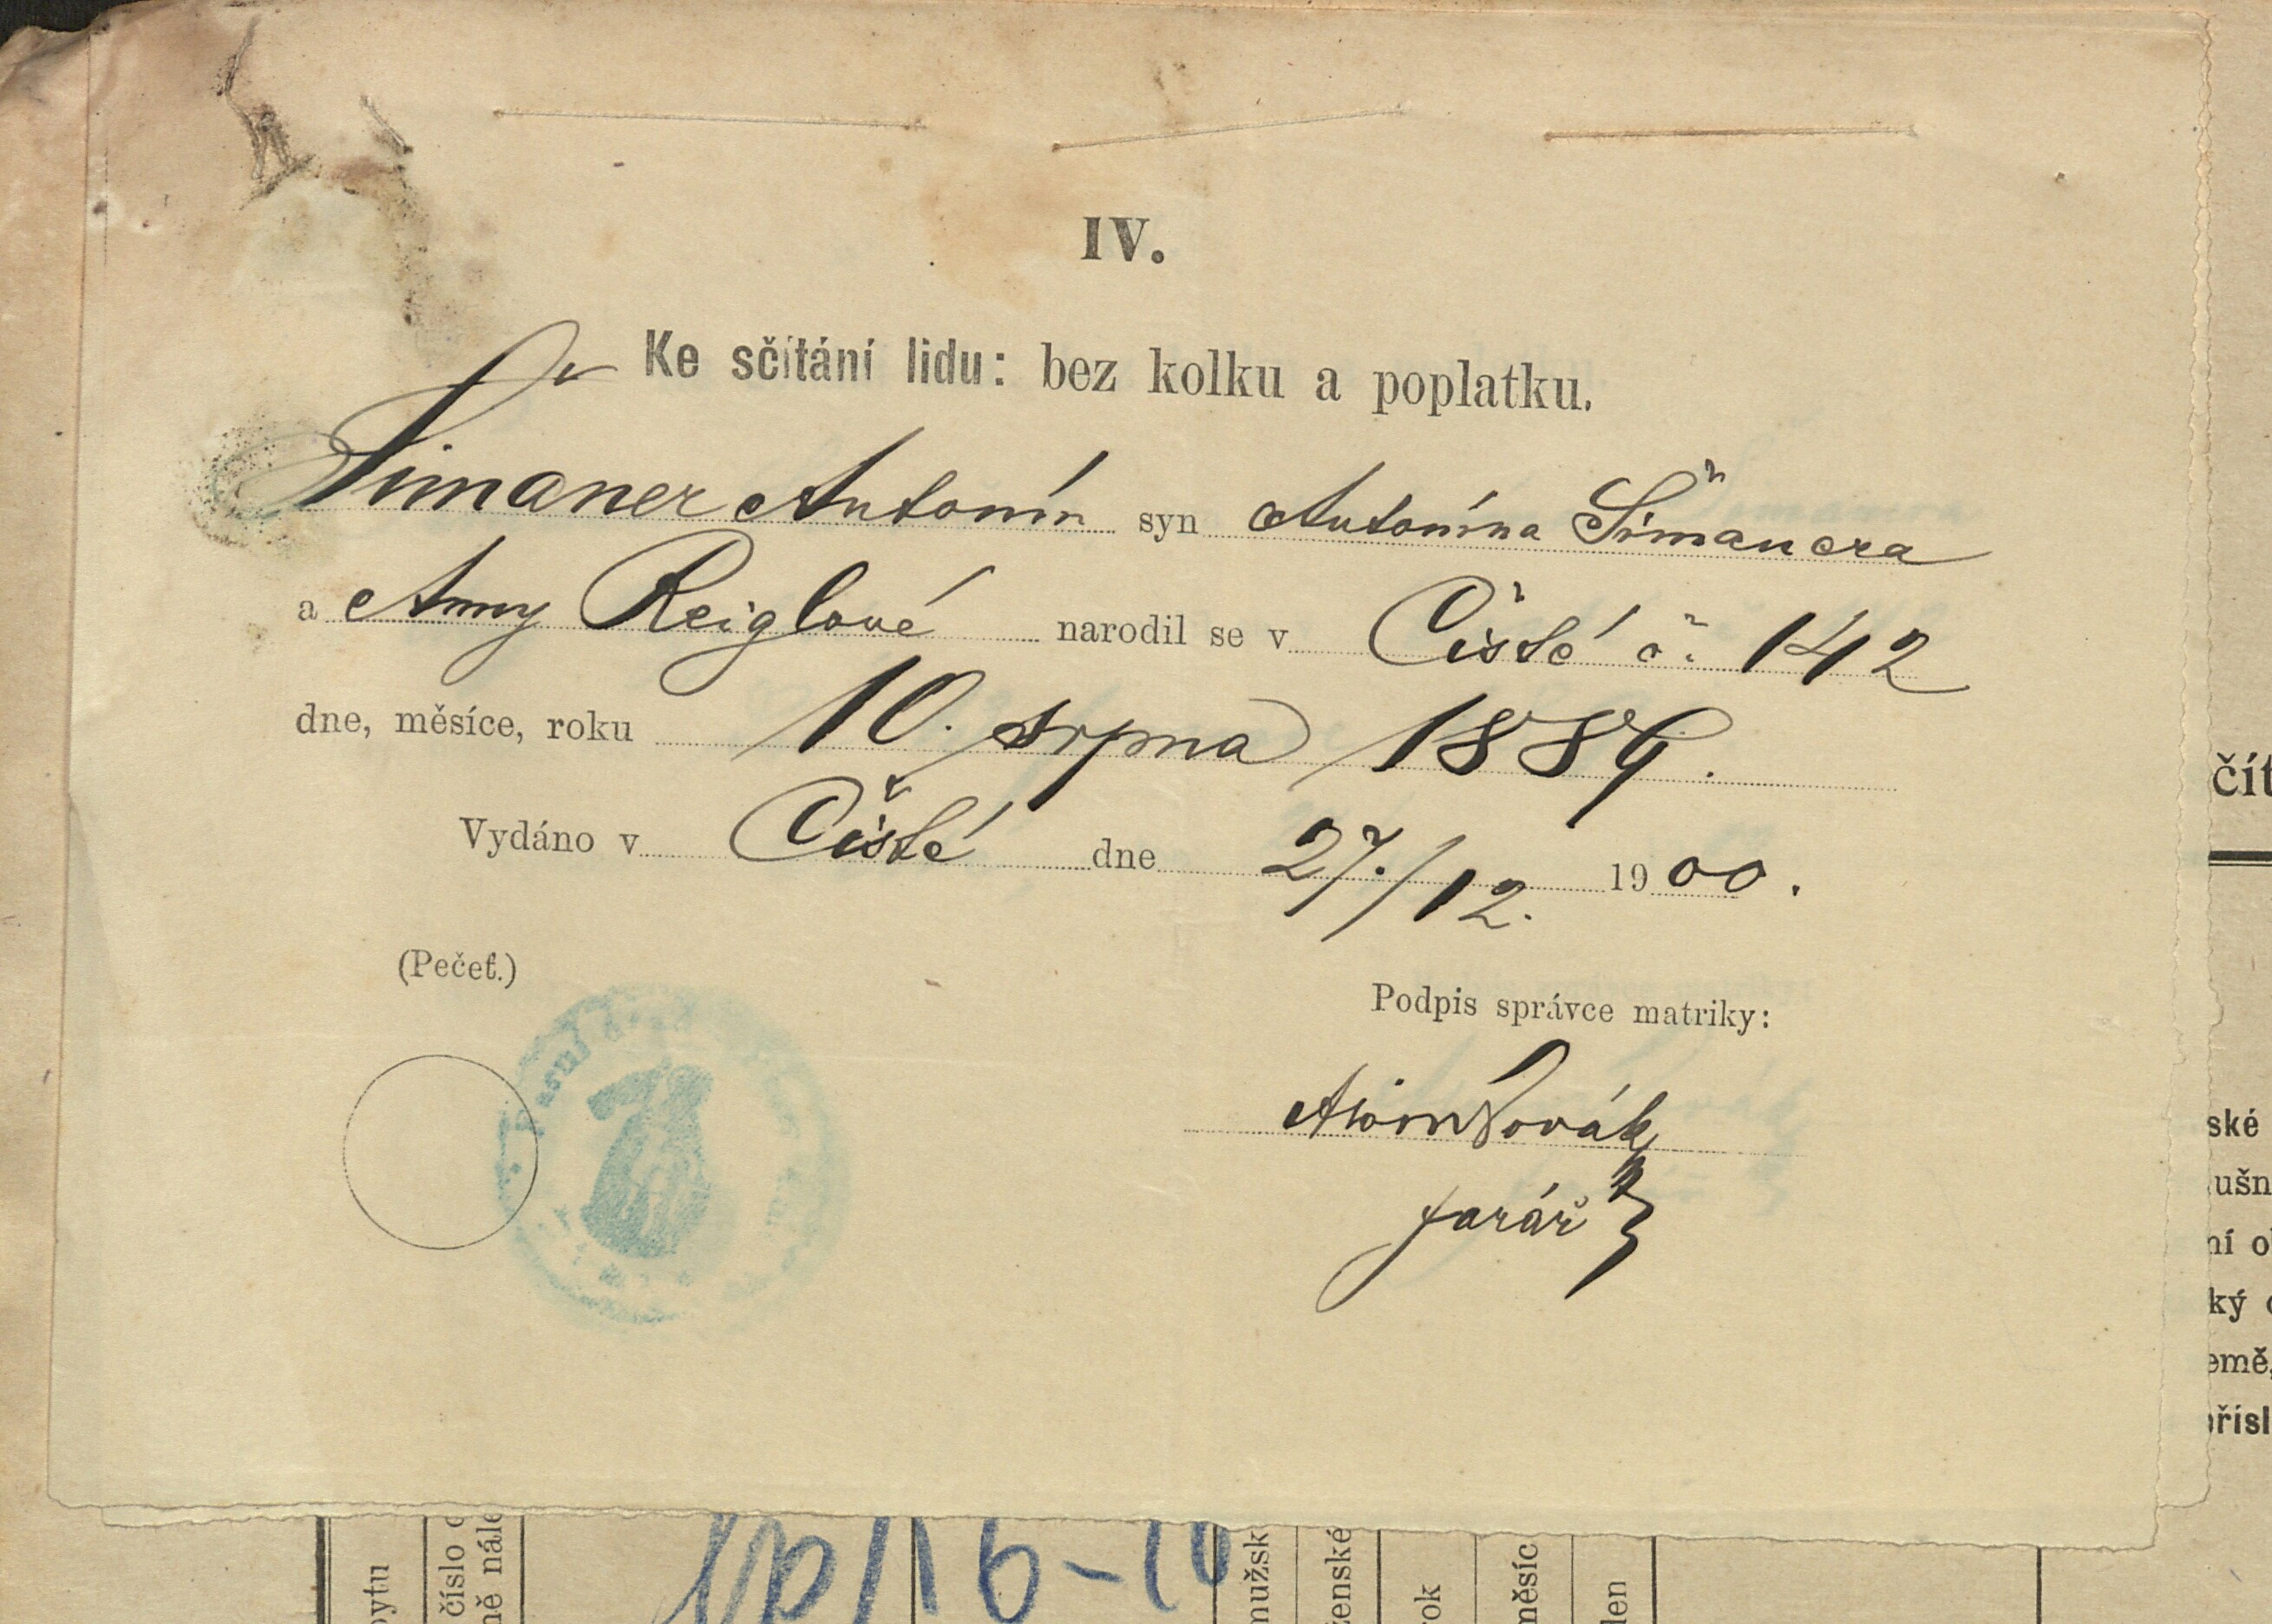 IV.
Ke sčítání lidu: bez kolku a poplatku.
Šimaner Antonín syn Antonína Šimanera
a Anny Reiglové narodil se v Čisté č. 142
dne, měsíce, roku 10. srpna 1889.
Vydáno v Čisté dne 27./12. 1900.
(Pečeť.)
Podpis správce matriky:
Novák
farář
čít
ské
ušn
ní o
ký
emě,
přísl
bytu
číslo
ně nále
16-10
mužsk
ženské
rok
měsíc
den